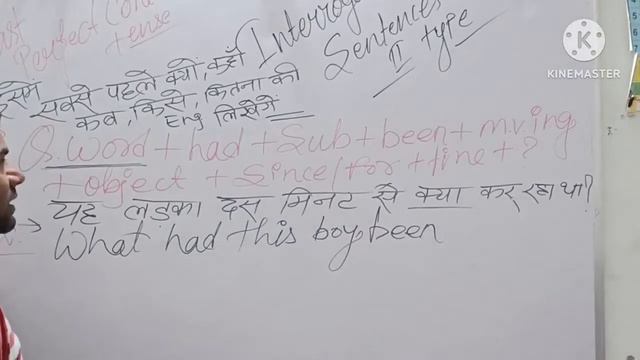 Perfect Con
tense
Interrog
Sentences
II type
इसमें सबसे पहले क्यों, कहाँ
कब, किसे, कितना की
Eng लिखेंगे
Q. word + had + Sub + been + m.v. ing
+ object + Since/for + time + ?
यह लड़का दस मिनट से क्या कर रहा था?
What had this boy been
KINEMASTER